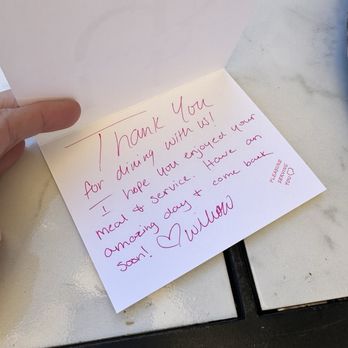 Thank You
for dining with us!
I hope you enjoyed your
meal & service. Have an
amazing day & come back
soon! ♡ Willow
PLEASURE
SERVING
YOU